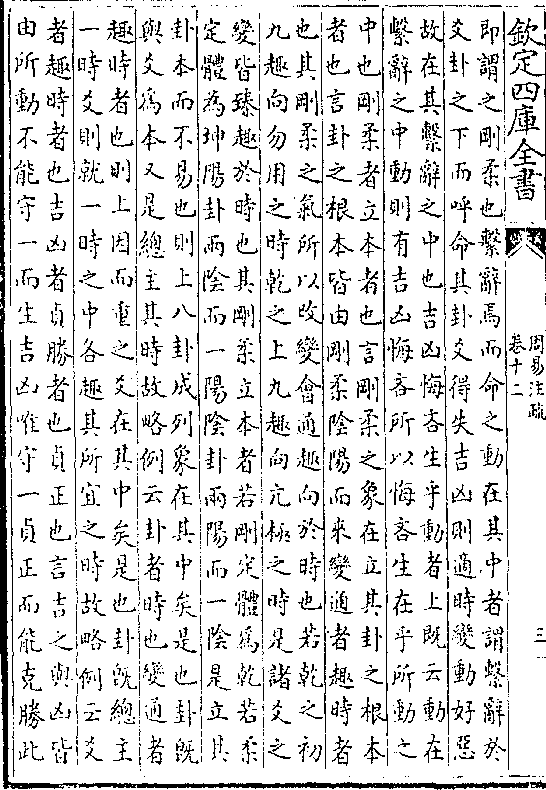 欽定四庫全書
周易注疏
卷十二
三
即謂之剛柔也繫辭焉而命之動在其中者謂繫辭於
爻卦之下而呼命其卦爻得失吉凶則適時變動好惡
故在其繫辭之中也吉凶悔吝生乎動者上既云動在
繫辭之中動則有吉凶悔吝所以悔吝生在乎所動之
中也剛柔者立本者也言剛柔之象在立其卦之根本
者也言卦之根本皆由剛柔陰陽而來變通者趣時者
也其剛柔之氣所以改變會通趣向於時也若乾之初
九趣向勿用之時乾之上九趣向亢極之時是諸爻之
變皆臻趣於時也其剛柔立本者若剛定體為乾若柔
定體為坤陽卦兩陰而一陽陰卦兩陽而一陰是立其
卦本而不易也則上八卦成列象在其中矣是也卦既
與爻為本又是總主其時故略例云卦者時也變通者
趣時者也則上因而重之爻在其中矣是也卦既總主
一時爻則就一時之中各趣其所宜之時故略例云爻
者趣時者也吉凶者貞勝者也貞正也言吉之與凶皆
由所動不能守一而生吉凶唯守一貞正而能克勝此